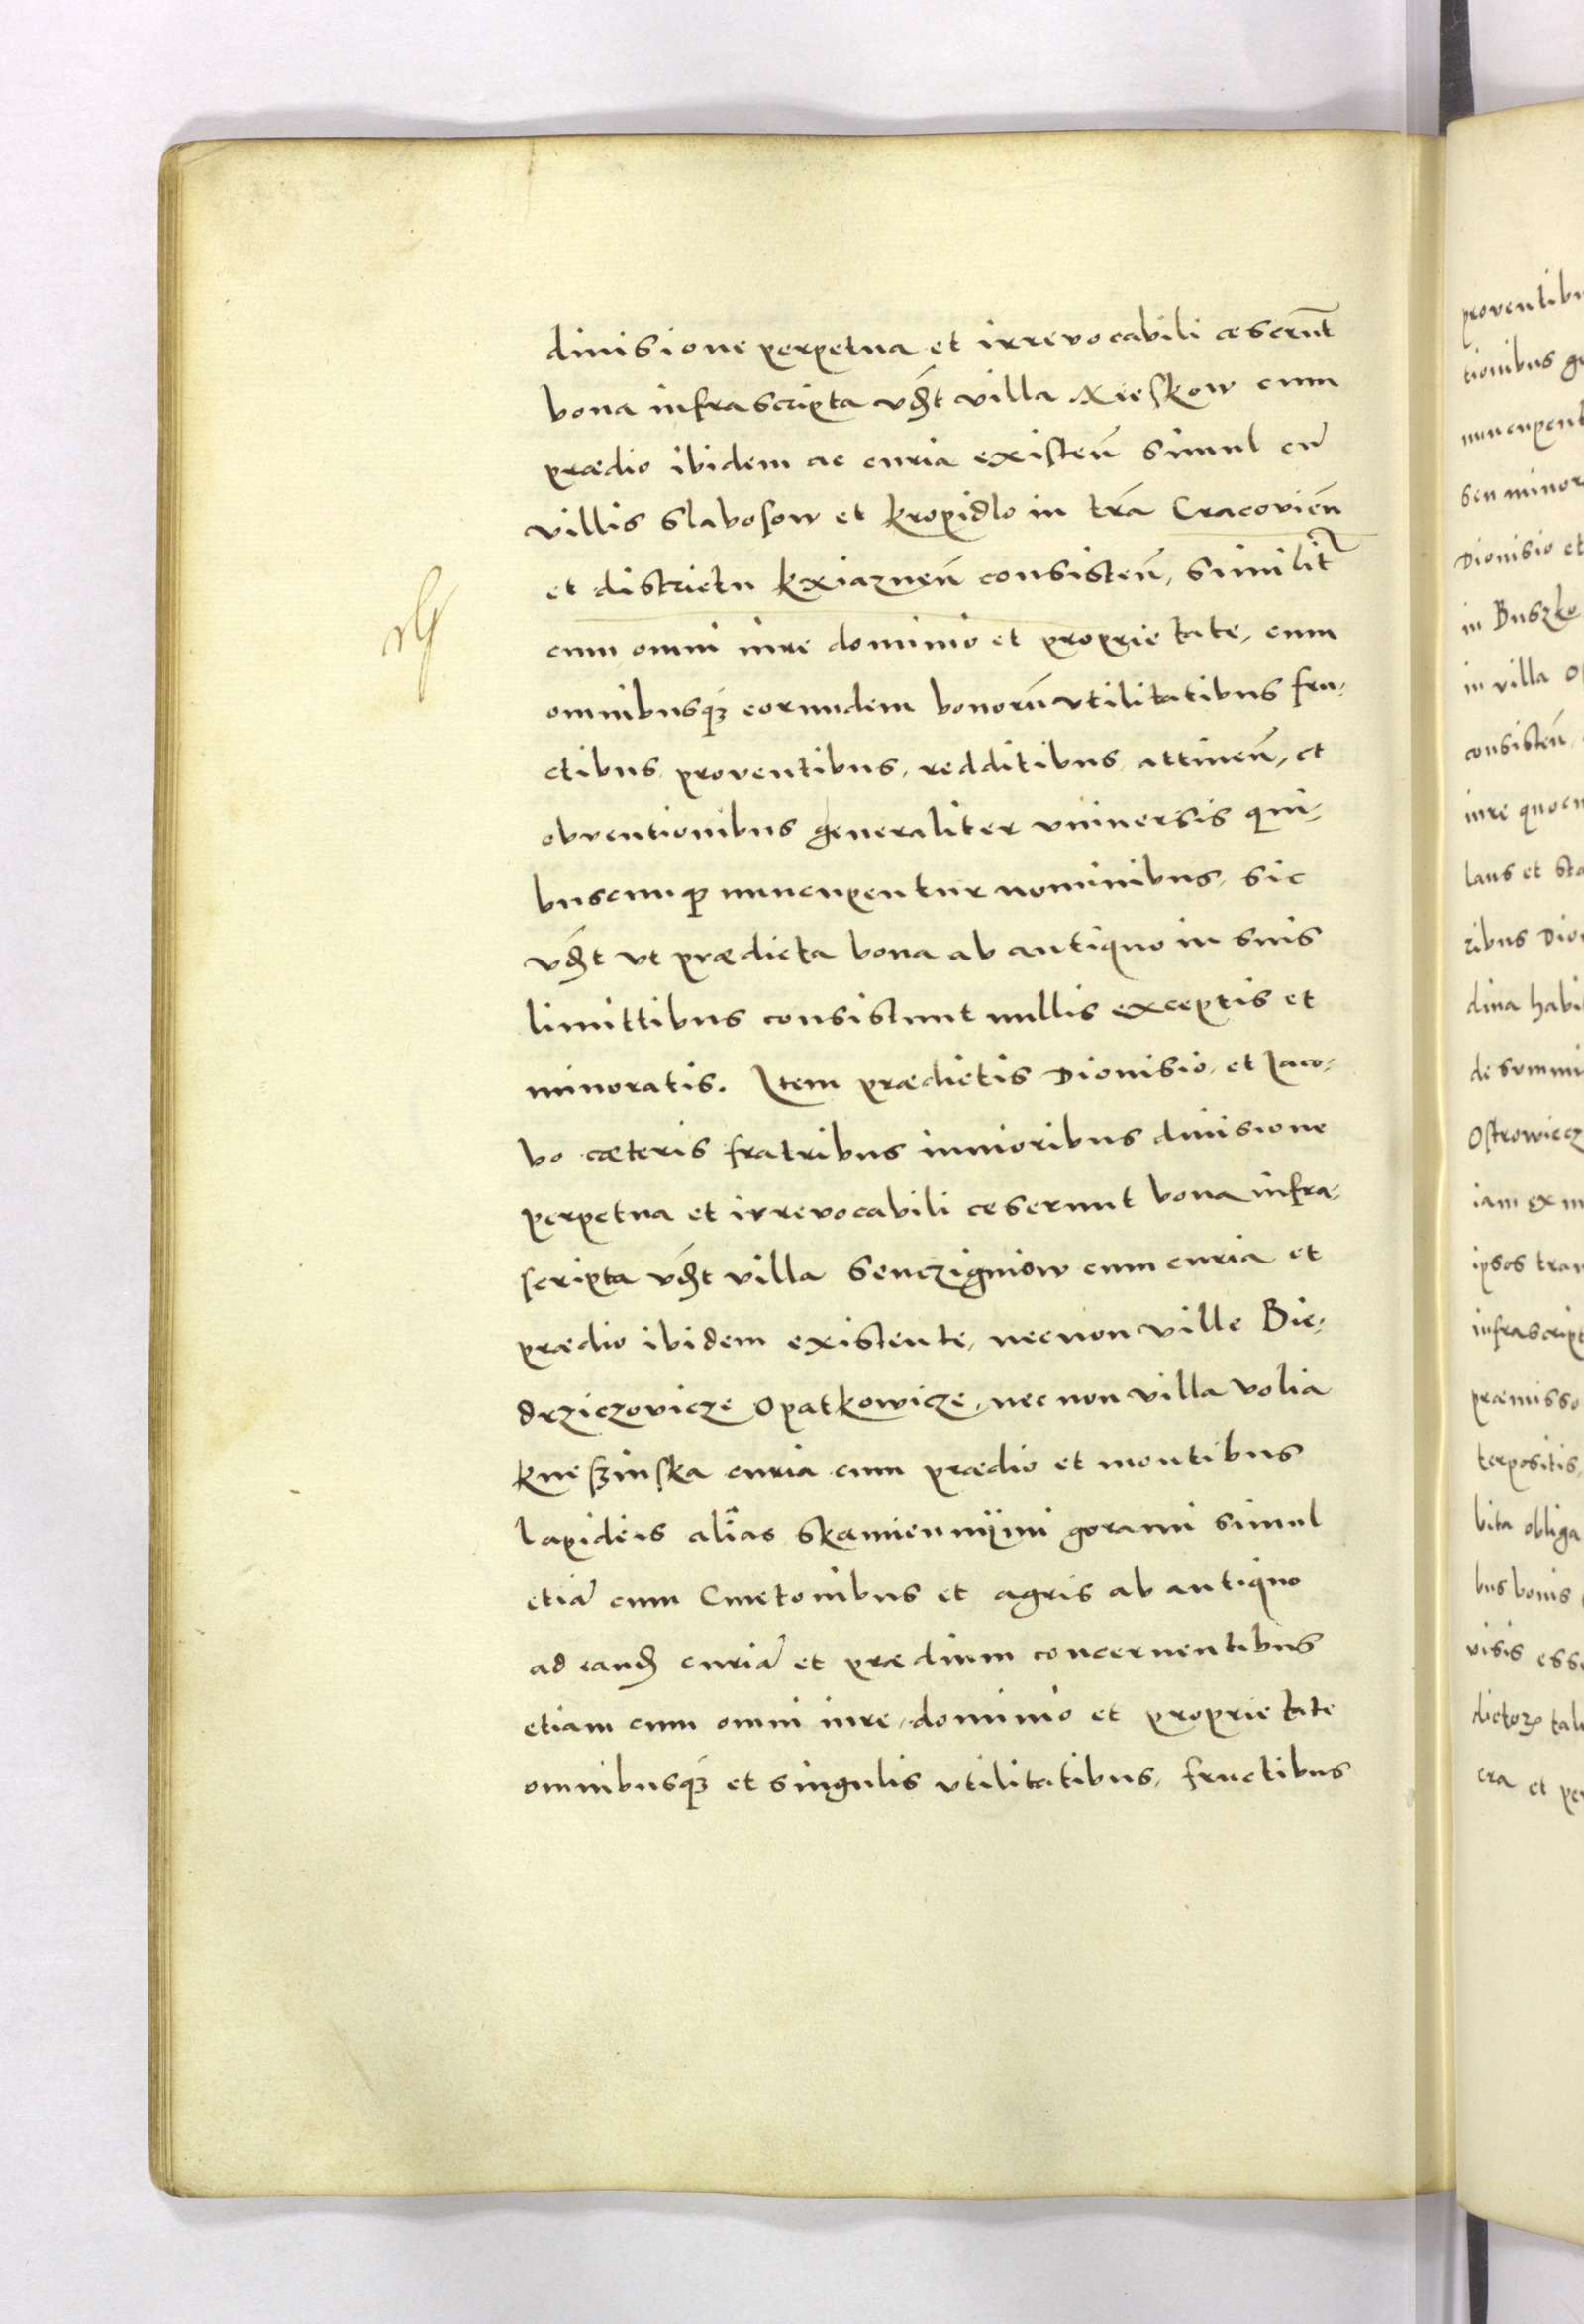 diuisione perpetua et irreuocabili cæserūt
bona infrascripta vdꝫt villa Xieskow cum
prædio ibidem ac curia existeñ simul cū
villis Slabosow et kropidlo in tr̃a Cracovieñ
et districtu kxiazneñ consisteñ, similit̃
cum omni iure dominio et proprietate, cum
omnibusqꝫ eorundem bonorū vtilitatibus fru-
ctibus proventibus, redditibus attineñ, et
obventionibus generaliter vniuersis qui-
buscunqꝫ nuncupentur nominibus, sic
vdꝫt vt prædicta bona ab antiquo in suis
limittibus consistunt nullis exceptis et
minoratis. Item prædictis Dionisio, et Iaco-
bo cæteris fratribus iunioribus diuisione
perpetua et irrevocabili ceserunt bona infra-
scripta vdꝫt villa Senczigniow cum curia et
prædio ibidem existente, necnon ville Bie-
drziczovicze Opatkowicze, nec non villa volia
kneszinska curia cum prædio et montibus
lapideis alias skamiennijmi gorami simul
etiā cum Cmetonibus et agris ab antiquo
ad eandꝫ curiā et prædium concernentibus
etiam cum omni iure, dominio et proprietate
omnibusqꝫ et singulis vtilitatibus, fructibus
proventibu
tionibus ge
nuncupent
seu minor
Dionisio et
in Buszko
in villa O
consisteñ
iure quocu
laus et Sta
ribus Dion
dina habi
de summi
Ostrowiecz
iam ex
ipsos tran
infrascript
præmisso
terpositis,
bita obliga
bus bonis
visis esse
dictoꝝ tal
cra et per